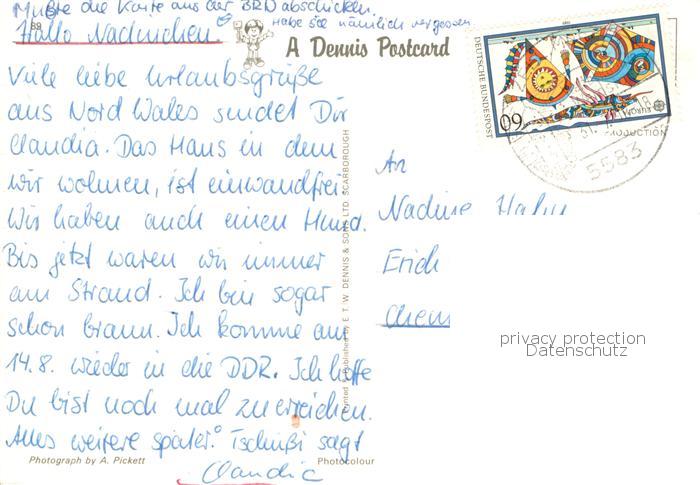 Mußte die Karte aus der BRD abschicken.
Habe sie nämlich vergessen.
Hallo Nadinchen.
A Dennis Postcard
Viele liebe Urlaubsgrüße
aus Nord Wales sendet Dir
Claudia. Das Haus in dem
wir wohnen, ist einwandfrei.
Wir haben auch einen Hund.
Bis jetzt waren wir immer
am Strand. Ich bin sogar
schon braun. Ich komme am
14.8. wieder in die DDR. Ich hoffe
Du bist noch mal zu erreichen.
Alles weitere später. Tschüßi sagt
Claudia
Photograph by A. Pickett
Photocolour
Printed & Published by E. T. W. DENNIS & SONS LTD. SCARBOROUGH
DEUTSCHE BUNDESPOST
60
EUROPA
5583
PRODUCTION
An
Nadine Hahn
Erich
Chem
privacy protection
Datenschutz